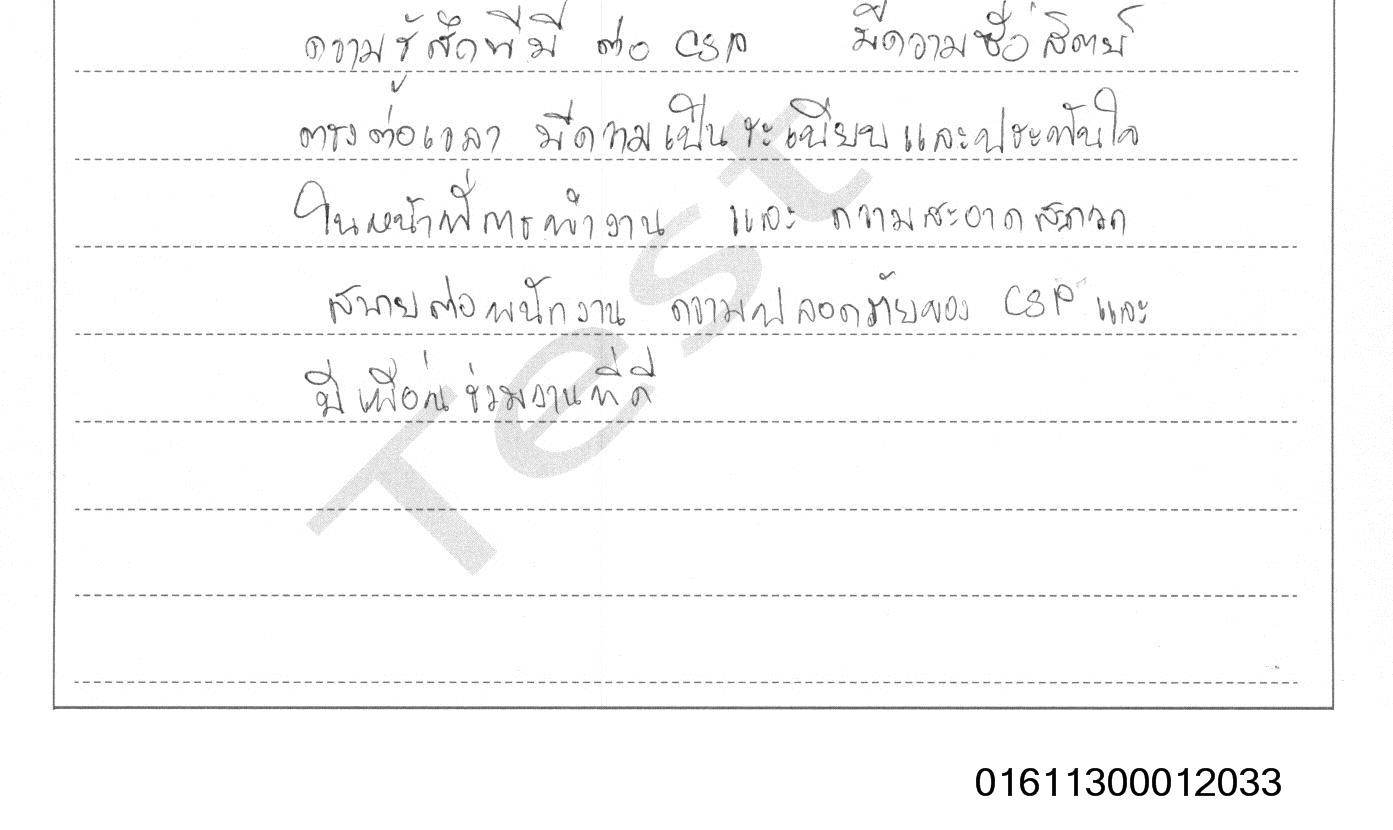 ความรู้สึกที่มี ต่อ CSP มีความซื่อสัตย์
ตรงต่อเวลา มีความเป็นระเบียบและประทับใจ
ในหน้าที่การทำงาน และ ความสะอาดสะดวก
สบายต่อพนักงาน ความปลอดภัยของ CSP และ
มีเพื่อนร่วมงานที่ดี
Test
01611300012033